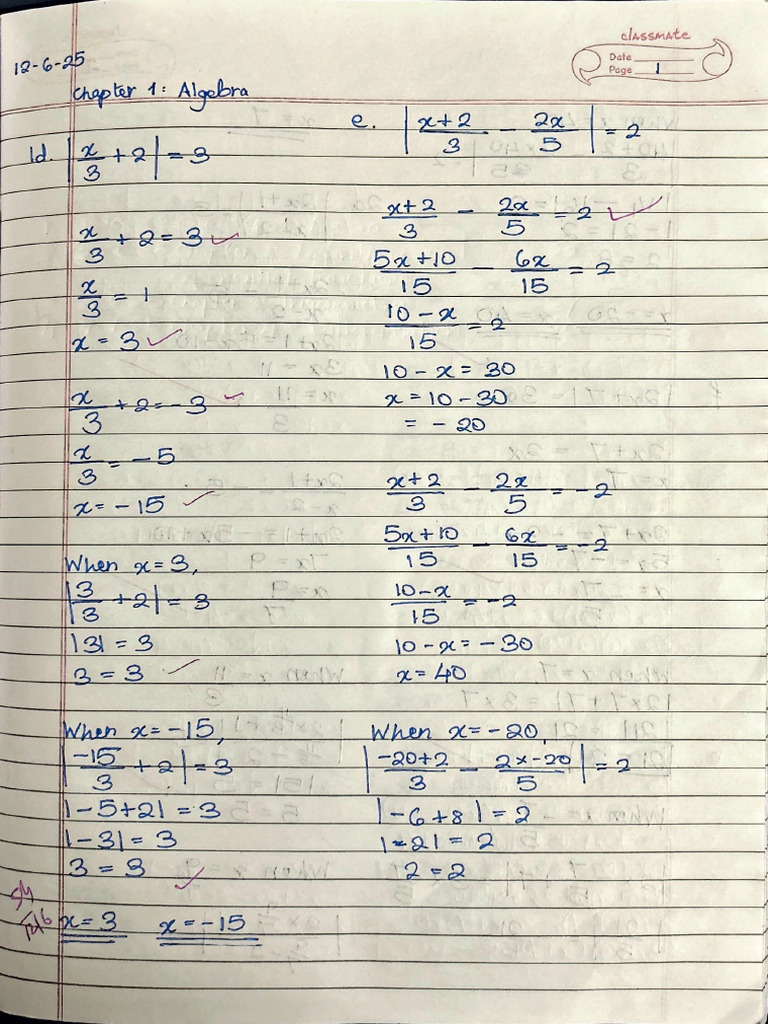 classmate
Date
Page 1
12-6-25
Chapter 1: Algebra
1d. |x/3 + 2| = 3
x/3 + 2 = 3 ✓
x/3 = 1
x = 3 ✓
x/3 + 2 = -3 ✓
x/3 = -5
x = -15 ✓
When x = 3,
|3/3 + 2| = 3
|3| = 3
3 = 3 ✓
When x = -15,
|-15/3 + 2| = 3
|-5+2| = 3
|-3| = 3
3 = 3 ✓
x = 3 x = -15
e. |x+2/3 - 2x/5| = 2
x+2/3 - 2x/5 = 2 ✓
5x+10/15 - 6x/15 = 2
10-x/15 = 2
10 - x = 30
x = 10 - 30
= -20
x+2/3 - 2x/5 = -2
5x+10/15 - 6x/15 = -2
10-x/15 = -2
10 - x = -30
x = 40
When x = -20,
|-20+2/3 - 2×-20/5| = 2
|-6+8| = 2
|-2| = 2
2 = 2